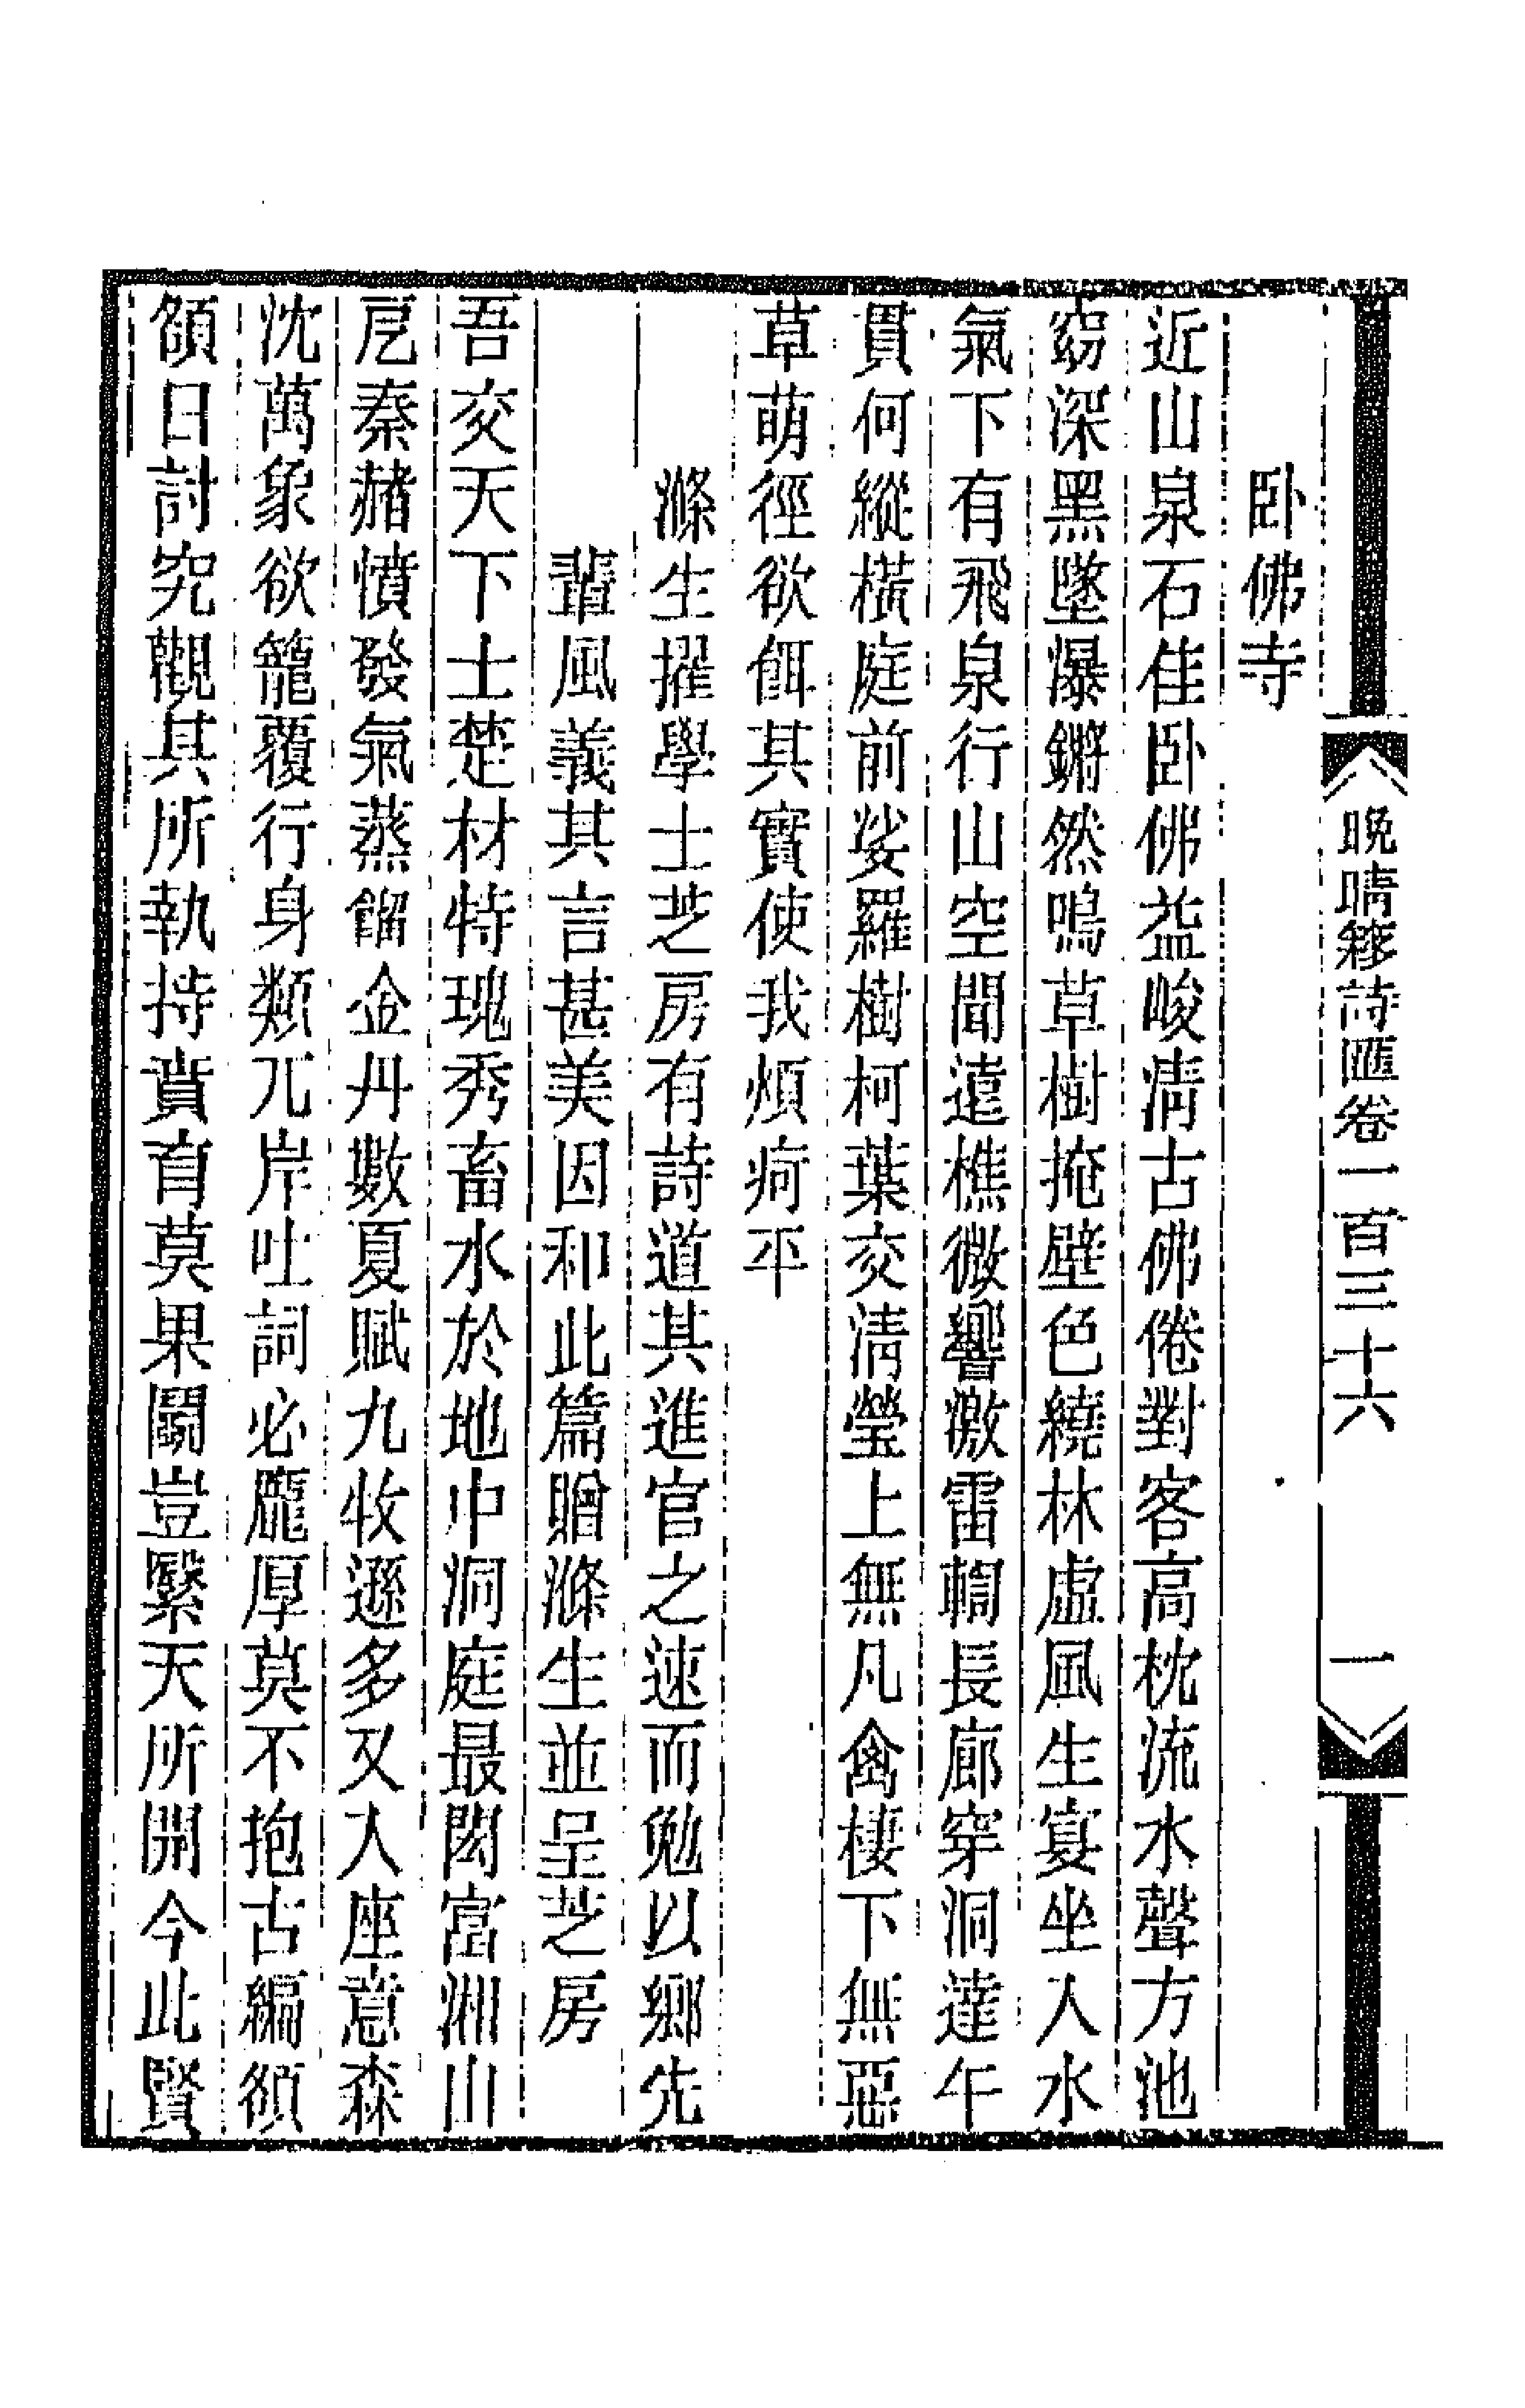 晚晴簃詩匯卷一百三十六
一
卧佛寺
近山泉石佳卧佛益峻清古佛倦對客高枕流水聲方池
窈深黑墜瀑鏘然鳴草樹掩壁色繞林虛風生宴坐入水
氣下有飛泉行山空聞遠樵微響激雷輷長廊穿洞達午
貫何縱橫庭前娑羅樹柯葉交清瑩上無凡禽棲下無惡
草萌徑欲餌其實使我煩疴平
滌生擢學士芝房有詩道其進官之速而勉以鄉先
輩風義其言甚美因和此篇贈滌生並呈芝房
吾交天下士楚材特瑰秀畜水於地中洞庭最閎富洲山
卮秦赭憤發氣蒸餾金丹數夏賦九牧遜多又人座意森
沈萬象欲籠覆行身類兀岸吐詞必龐厚莫不抱古編頟
頟日討究觀其所執持賁育莫果鬭豈繄天所開今此賢